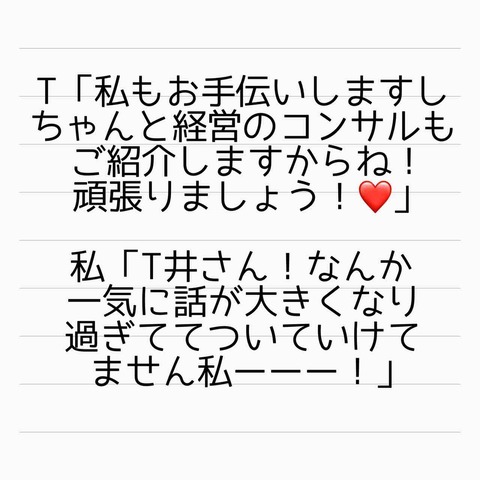 T「私もお手伝いしますし
ちゃんと経営のコンサルも
ご紹介しますからね！
頑張りましょう！❤️」
私「T井さん！なんか
一気に話が大きくなり
過ぎててついていけて
ません私ーーー！」